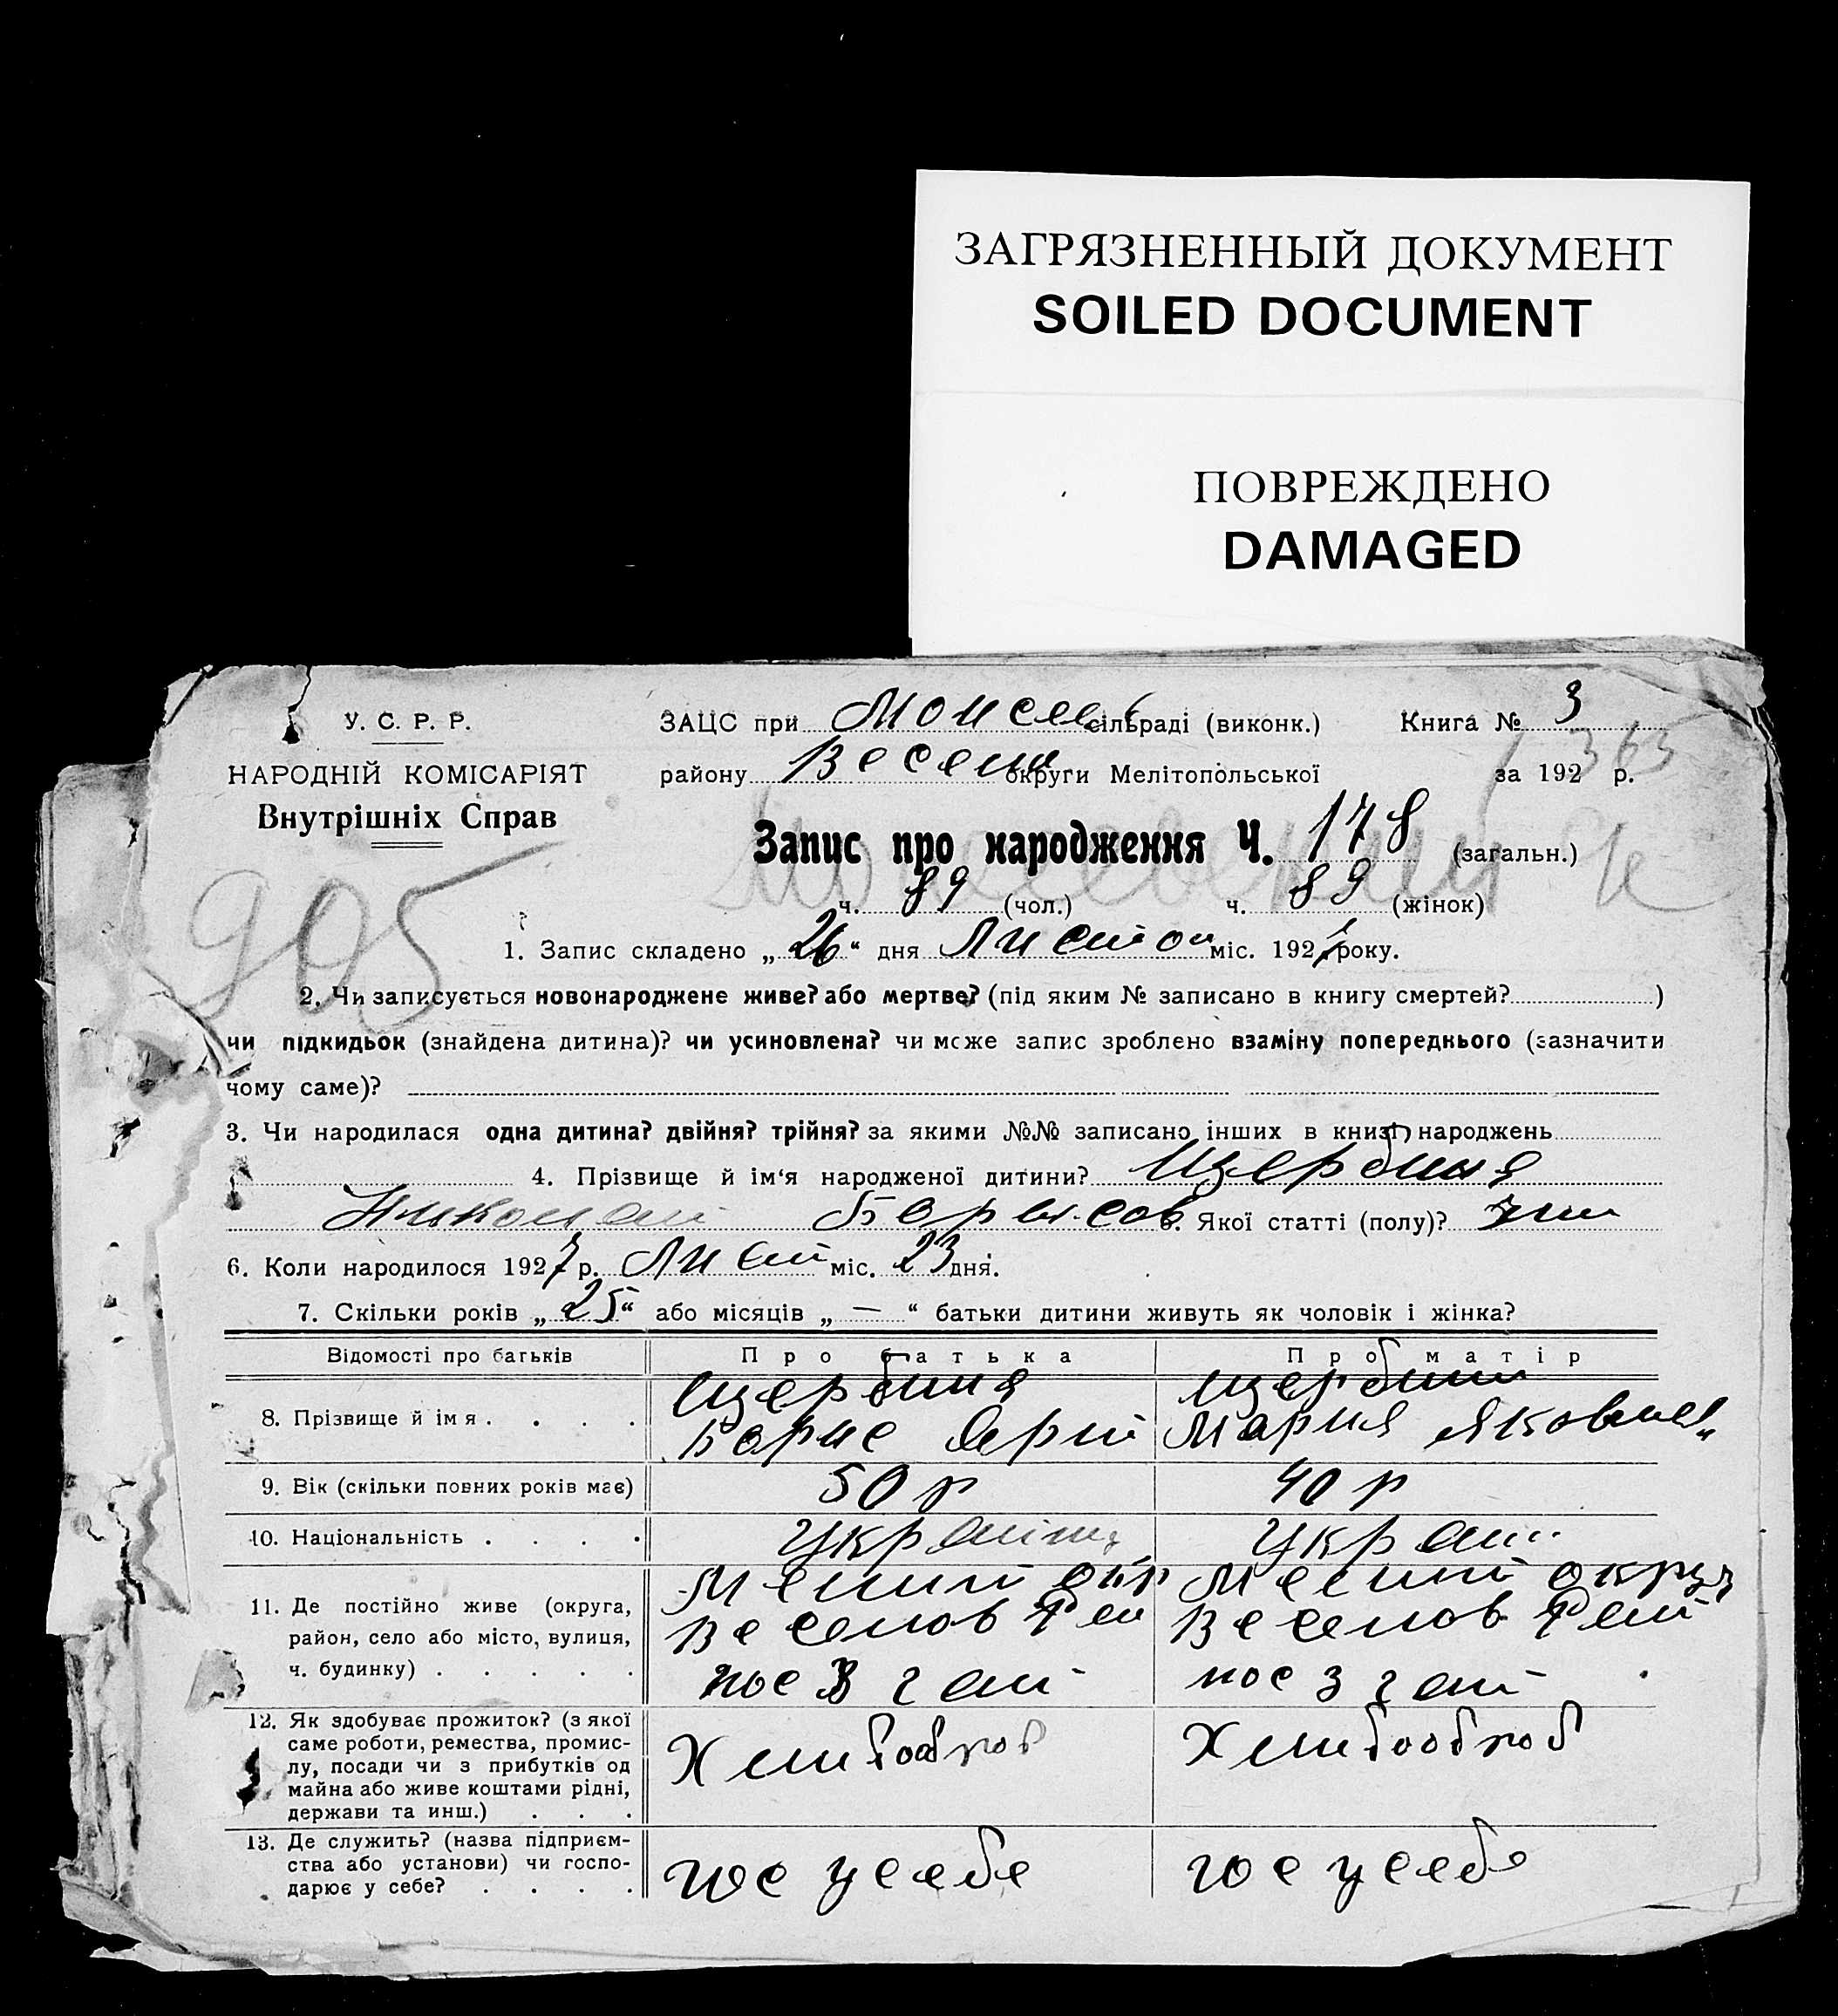 ЗАГРЯЗНЕННЫЙ ДОКУМЕНТ
SOILED DOCUMENT
ПОВРЕЖДЕНО
DAMAGED
У. С. Р. Р.
НАРОДНІЙ КОМІСАРІЯТ
Внутрішніх Справ
ЗАЦС при сільраді (виконк.) Книга № 3
району округи Мелітопольської за 192 р.
365
Запис про народження Ч. 178 (загальн.)
ч. 89 (чол.) ч. 89 (жінок)
905
1. Запис складено „26“ дня Листоп міс. 1927 року.
2. Чи записується новонароджене живе? або мертве? (під яким № записано в книгу смертей? )
чи підкидьок (знайдена дитина)? чи усиновлена? чи може запис зроблено взаміну попереднього (зазначити
чому саме)?
3. Чи народилася одна дитина? двійня? трійня? за якими №№ записано інших в книзі народжень
4. Прізвище й ім‘я народженої дитини? Щербина
Николай Борысов 5. Якої статті (полу)?
6. Коли народилося 1927 р. Лист міс. 23 дня.
7. Скільки років „25“ або місяців „—“ батьки дитини живуть як чоловік і жінка?
Відомості про батьків Про батька Про матір
8. Прізвище й імя . . . . Щербина Щербин
Борис Мария Яковлев
9. Вік (скільки повних років має) 50 р 40 р
10. Національність . . . . Україн Украї
11. Де постійно живе (округа, район, село або місто, вулиця, ч. будинку) . . . . . Мелит окр Мелит округ
Веселов Рай Веселов Рай
пос 3 гай пос 3 гай
12. Як здобуває прожиток? (з якої
саме роботи, ремества, промис-
лу, посади чи з прибутків од
майна або живе коштами рідні,
держави та инш.) . . . Хлибороб Хлибороб
13. Де служить? (назва підприєм-
ства або установи) чи госпо-
дарює у себе? . . . . гос у себе гос у себе